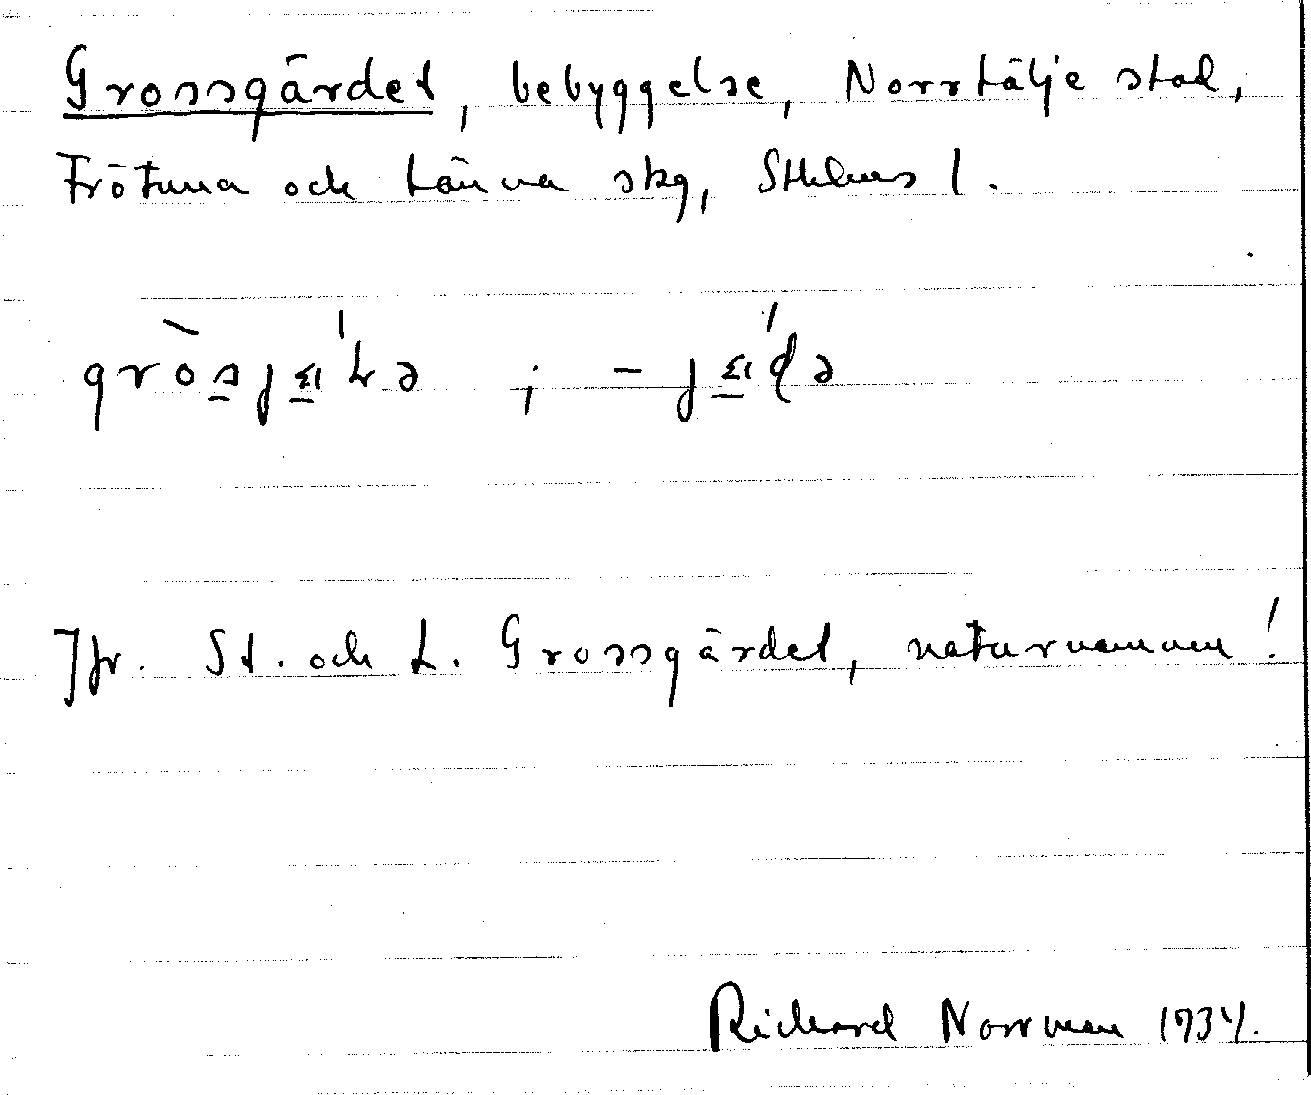 Grossgärdet, bebyggelse, Norrtälje stad,
Frötuna och Länna skg, Sthlms l.
Jfr. St. och L. Grossgärdet, naturnamn!
Richard Norrman 1934.